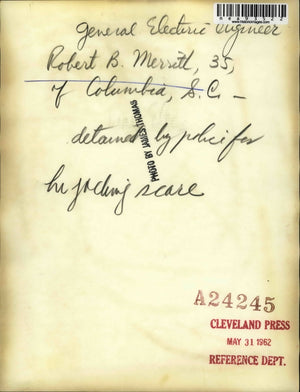 General Electric engineer
Robert B. Merritt, 35,
of Columbia, S.C. –
detained by police for
hi jacking scare
PHOTO BY JAMES THOMAS
A24245
CLEVELAND PRESS
MAY 31 1962
REFERENCE DEPT.